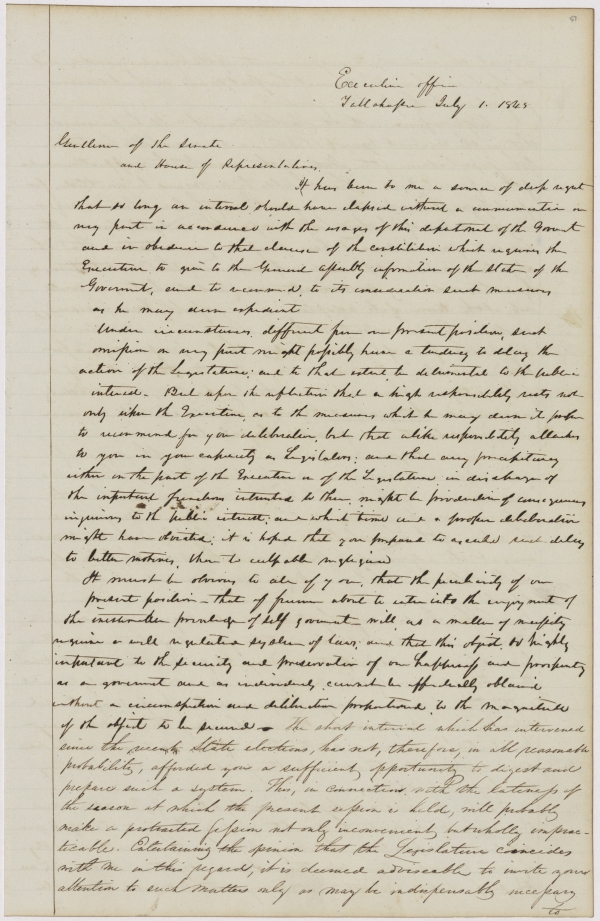 Executive office
Tallahassee July 1. 1845
Gentlemen of the Senate
and House of Representatives,
It has been to me a source of deep regret
that so long an interval should have elapsed without a communication on
my part in accordance with the usages of this department of the Govmnt
and in obedience to that clause of the constitution which requires the
Executive to give to the General assembly information of the state of the
Goverment, and to recommend, to its consideration such measures
as he may deem expedient
Under circumstances, different from our present position, such
omission on my part might possibly have a tendency to delay the
action of the Legislature; and to that extent be detrimental to the public
interest. But upon the reflection that a high responsibility rests not
only upon the Executive, as to the measures which he may deem it proper
to recommend for your deliberation, but that alike responsibility attaches
to you in your capacity as Legislators; and that any precipitancy
either on the part of the Executive or of the Legislature in discharge of
the important functions intrusted to them, might be productive of consequences
injurious to the public interest; and which time and a proper deliberation
might have obviated; it is hoped that you prepared to ascribe such delay
to better motives, than to culpable negligence
It must be obvious to all of you, that the peculiarity of our
present position - that of freemen about to enter into the enjoyment of
the inestimable privilege of self goverment will, as a matter of necessity
require a well regulated system of laws; and that this object, so highly
important to the security and preservation of our happiness and prosperity
as a goverment and as individuals, cannot be effectually obtained
without a circumspection and deliberation proportioned to the magnitude
of the object to be secured - The short interval which has intervened
since the recent State elections, has not, therefore, in all reasonable
probability, afforded you a sufficient opportunity to digest and
prepare such a system. This, in connection with the lateness of
the season at which the present session is held, will probably
make a protracted session not only inconvenient, but wholly imprac-
ticable. Entertaining the opinion that the Legislature coincides
with me in this regard, it is deemed adviseable to invite your
attention to such matters only as may be indispensably necessary
to